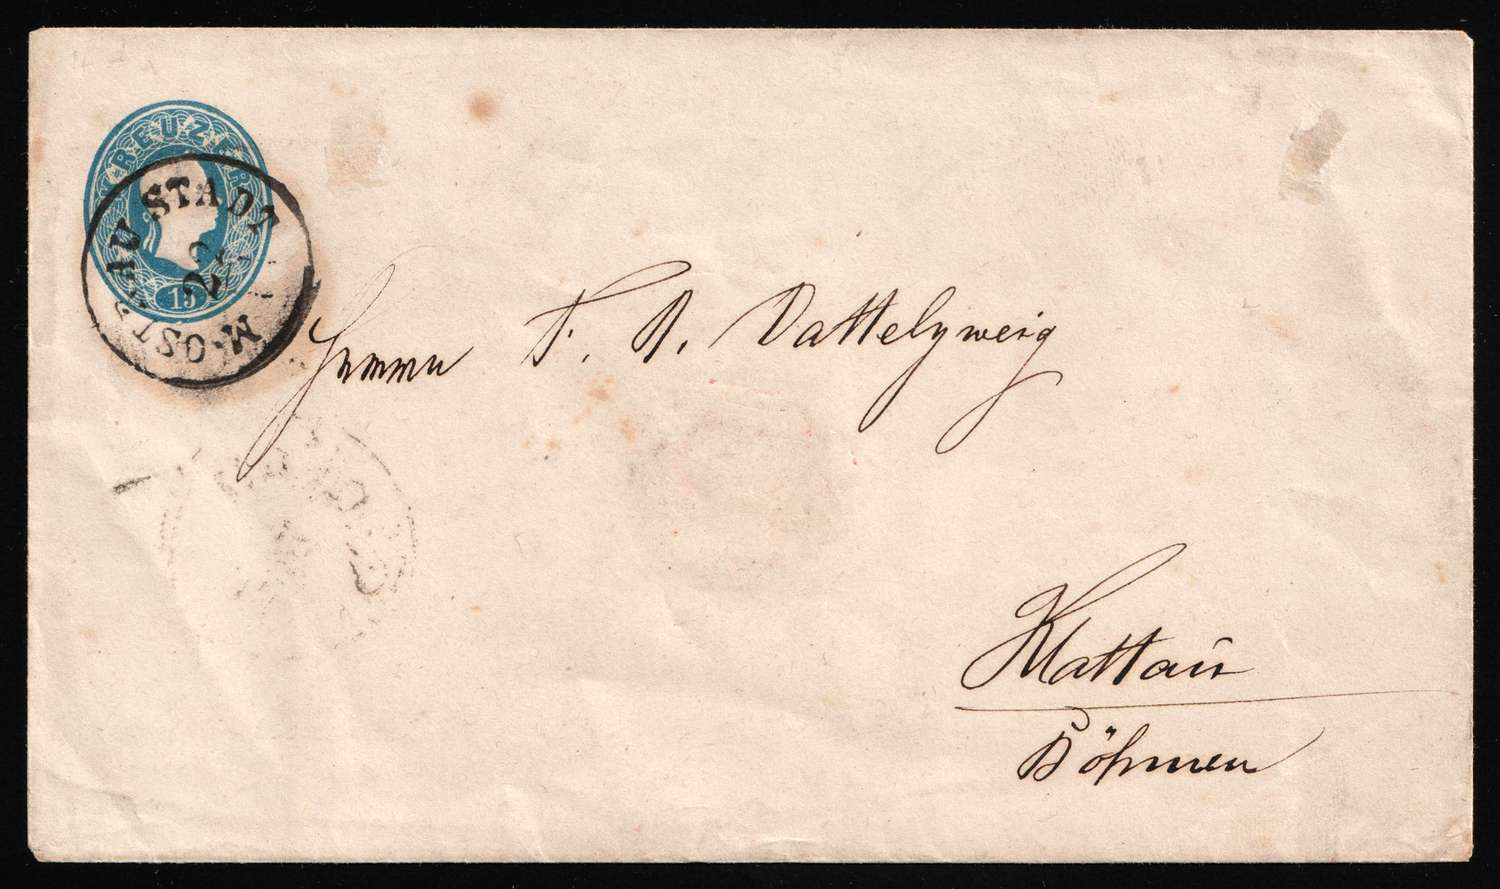 KREUZER
15
M. OSTRAU STADT
Herrn F. A. Dattelzweig
Klattau
Böhmen